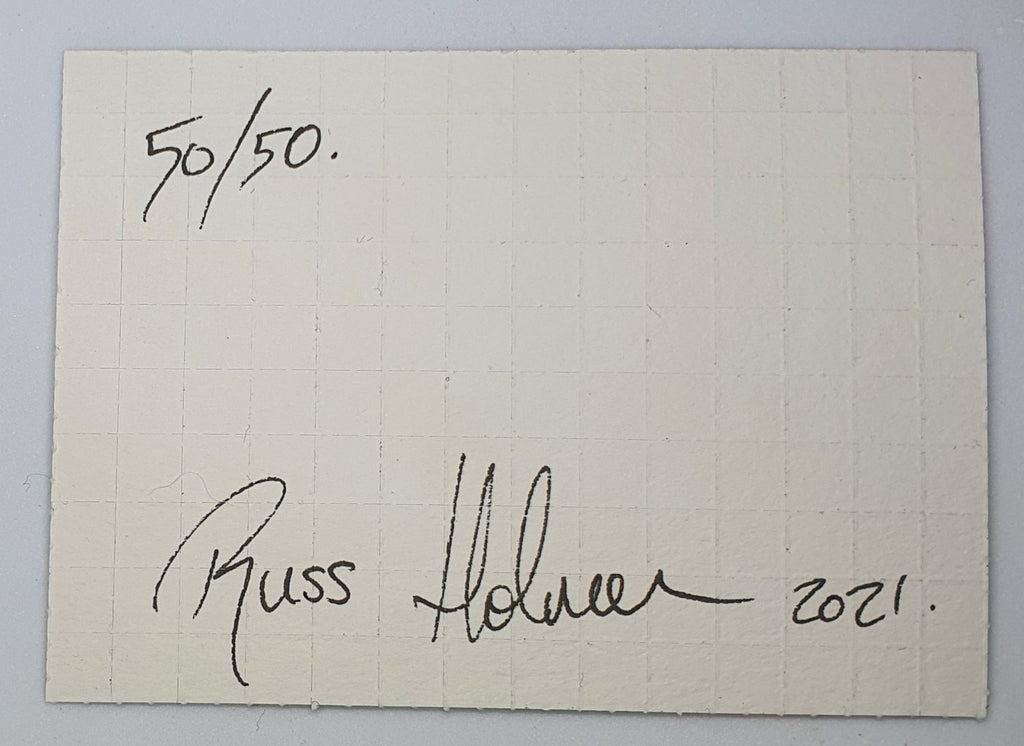 50/50.
Russ Holmer 2021.